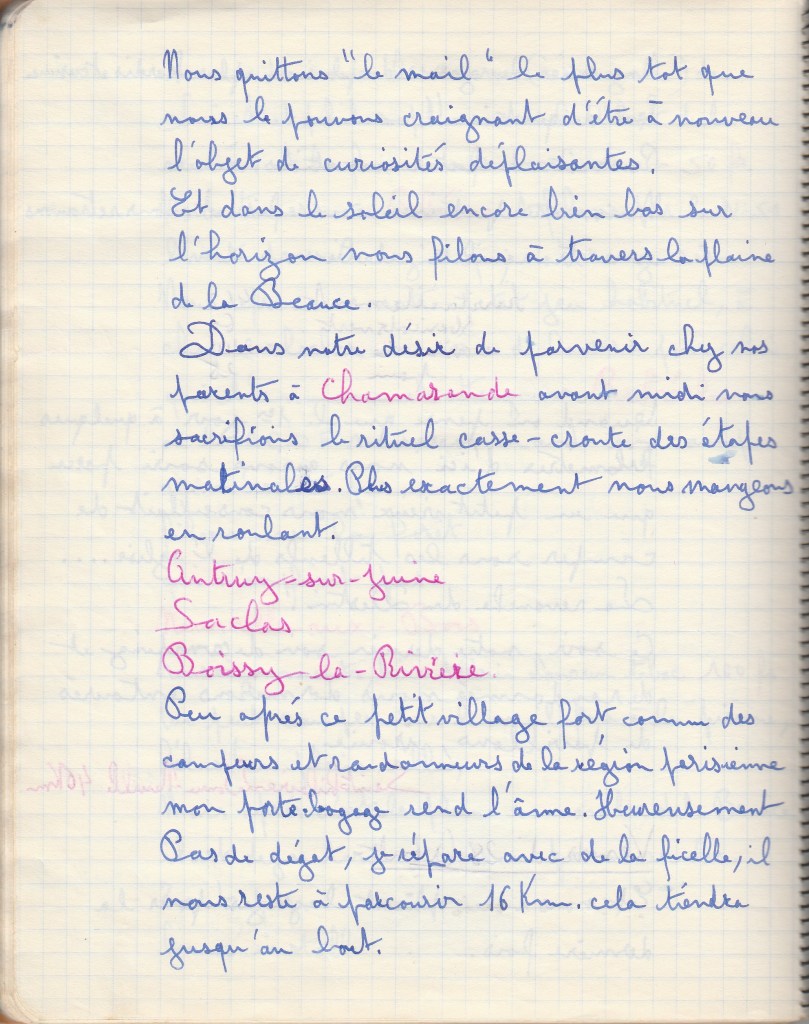 Nous quittons "le mail" le plus tot que
nous le pouvons craignant d'être à nouveau
l'objet de curiosités déplaisantes.
Et dans le soleil encore bien bas sur
l'horizon nous filons à travers la plaine
de la Beauce.
Dans notre désir de parvenir chez nos
parents à Chamarande avant midi nous
sacrifions le rituel casse-croute des étapes
matinales. Plus exactement nous mangeons
en roulant.
Autruy-sur-Juine
Saclas
Boissy-la-Rivière.
Peu aprés ce petit village fort connu des
campeurs et randonneurs de la région parisienne
mon porte-bagage rend l'âme. Heureusement
Pas de dégat, je répare avec de la ficelle, il
nous reste à parcourir 16 Km. cela tiendra
jusqu'au bout.